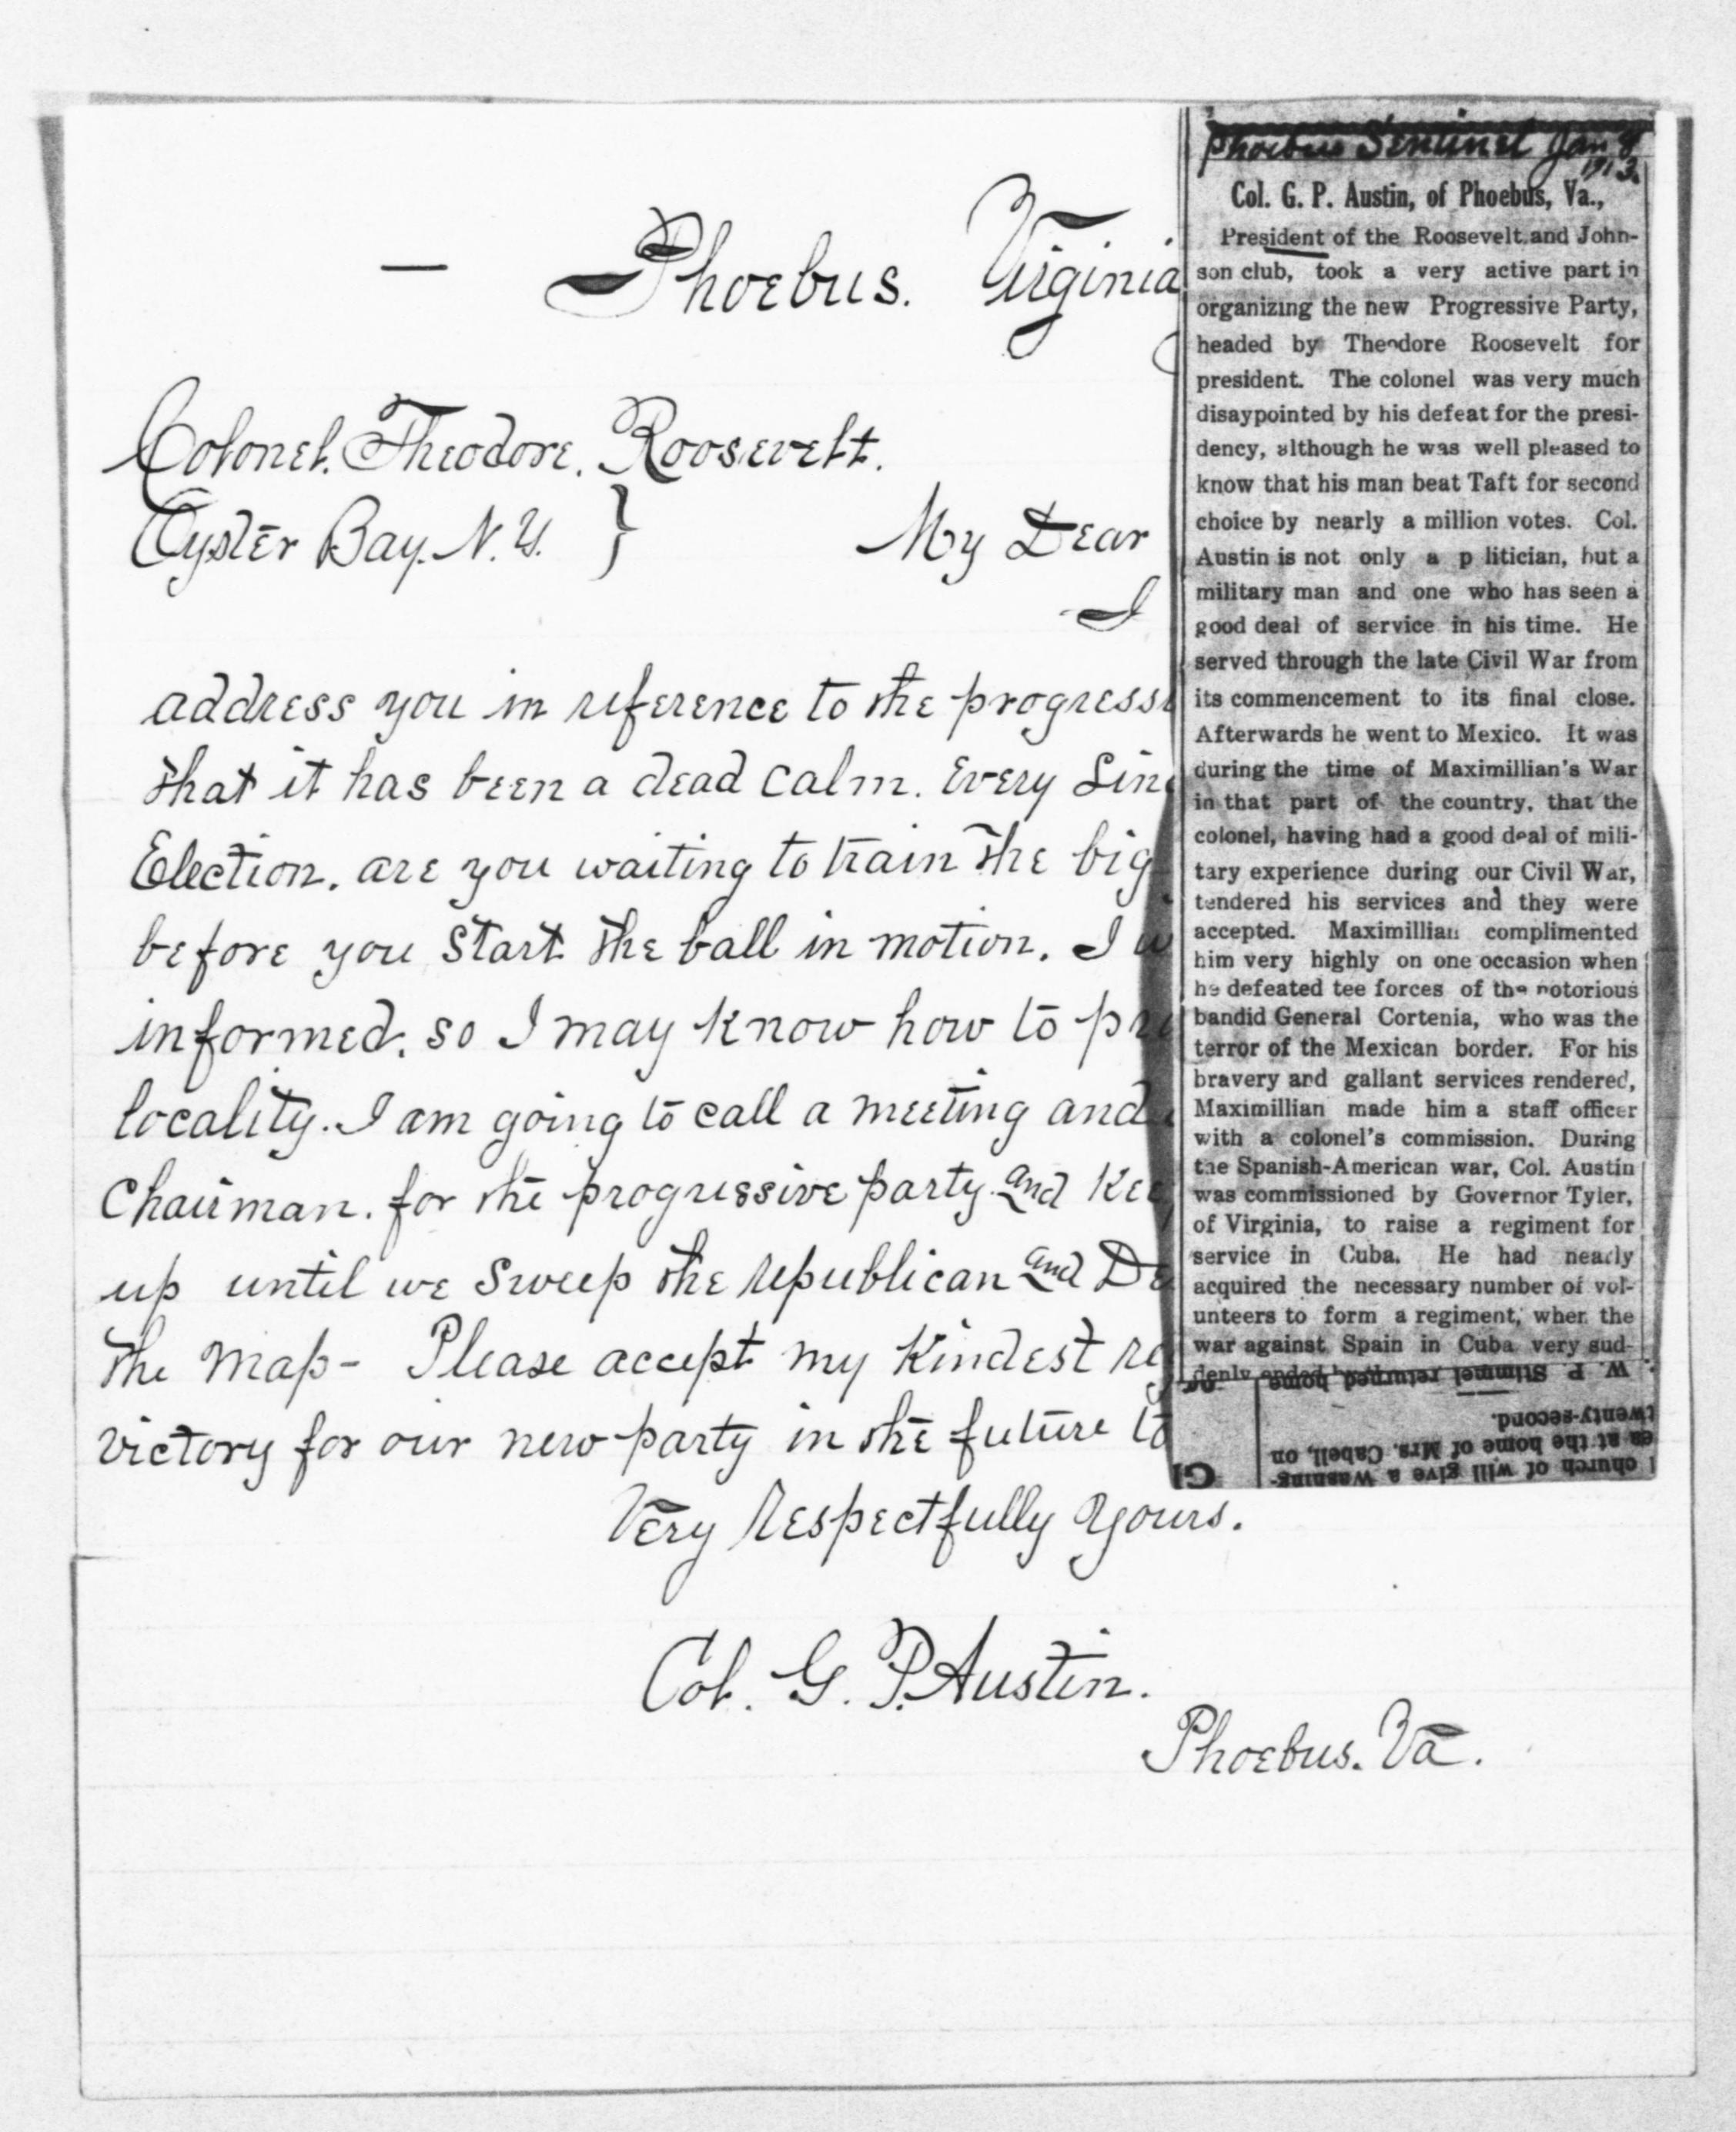 Phoebus. Virginia
Colonel. Theodore. Roosevelt.
Oyster Bay. N. Y. }
My Dear
I
address you in reference to the progress
that it has been a dead calm. Every Sin
Election. are you waiting to train the big
before you start the ball in motion. I w
informed. so I may know how to pr
locality. I am going to call a meeting and
Chairman. for the progressive party. and Kee
up until we sweep the republican and De
the map- Please accept my Kindest re
victory for our new party in the future to
Very Respectfully Yours.
Col. G. P. Austin.
Phoebus. Va.
Phoebus Sentinel Jan 8
1913.
Col. G. P. Austin, of Phoebus, Va.,
President of the Roosevelt and John-
son club, took a very active part in
organizing the new Progressive Party,
headed by Theodore Roosevelt for
president. The colonel was very much
disaypointed by his defeat for the presi-
dency, although he was well pleased to
know that his man beat Taft for second
choice by nearly a million votes. Col.
Austin is not only a p litician, but a
military man and one who has seen a
good deal of service in his time. He
served through the late Civil War from
its commencement to its final close.
Afterwards he went to Mexico. It was
during the time of Maximillian's War
in that part of the country, that the
colonel, having had a good deal of mili-
tary experience during our Civil War,
tendered his services and they were
accepted. Maximillian complimented
him very highly on one occasion when
he defeated tee forces of the notorious
bandid General Cortenia, who was the
terror of the Mexican border. For his
bravery and gallant services rendered,
Maximillian made him a staff officer
with a colonel's commission. During
the Spanish-American war, Col. Austin
was commissioned by Governor Tyler,
of Virginia, to raise a regiment for
service in Cuba. He had nearly
acquired the necessary number of vol-
unteers to form a regiment, when the
war against Spain in Cuba very sud-
denly ended
church of will give a Washing-
ea at the home of Mrs. Cabell, on
twenty-second.
W. P. Stimmel returned home